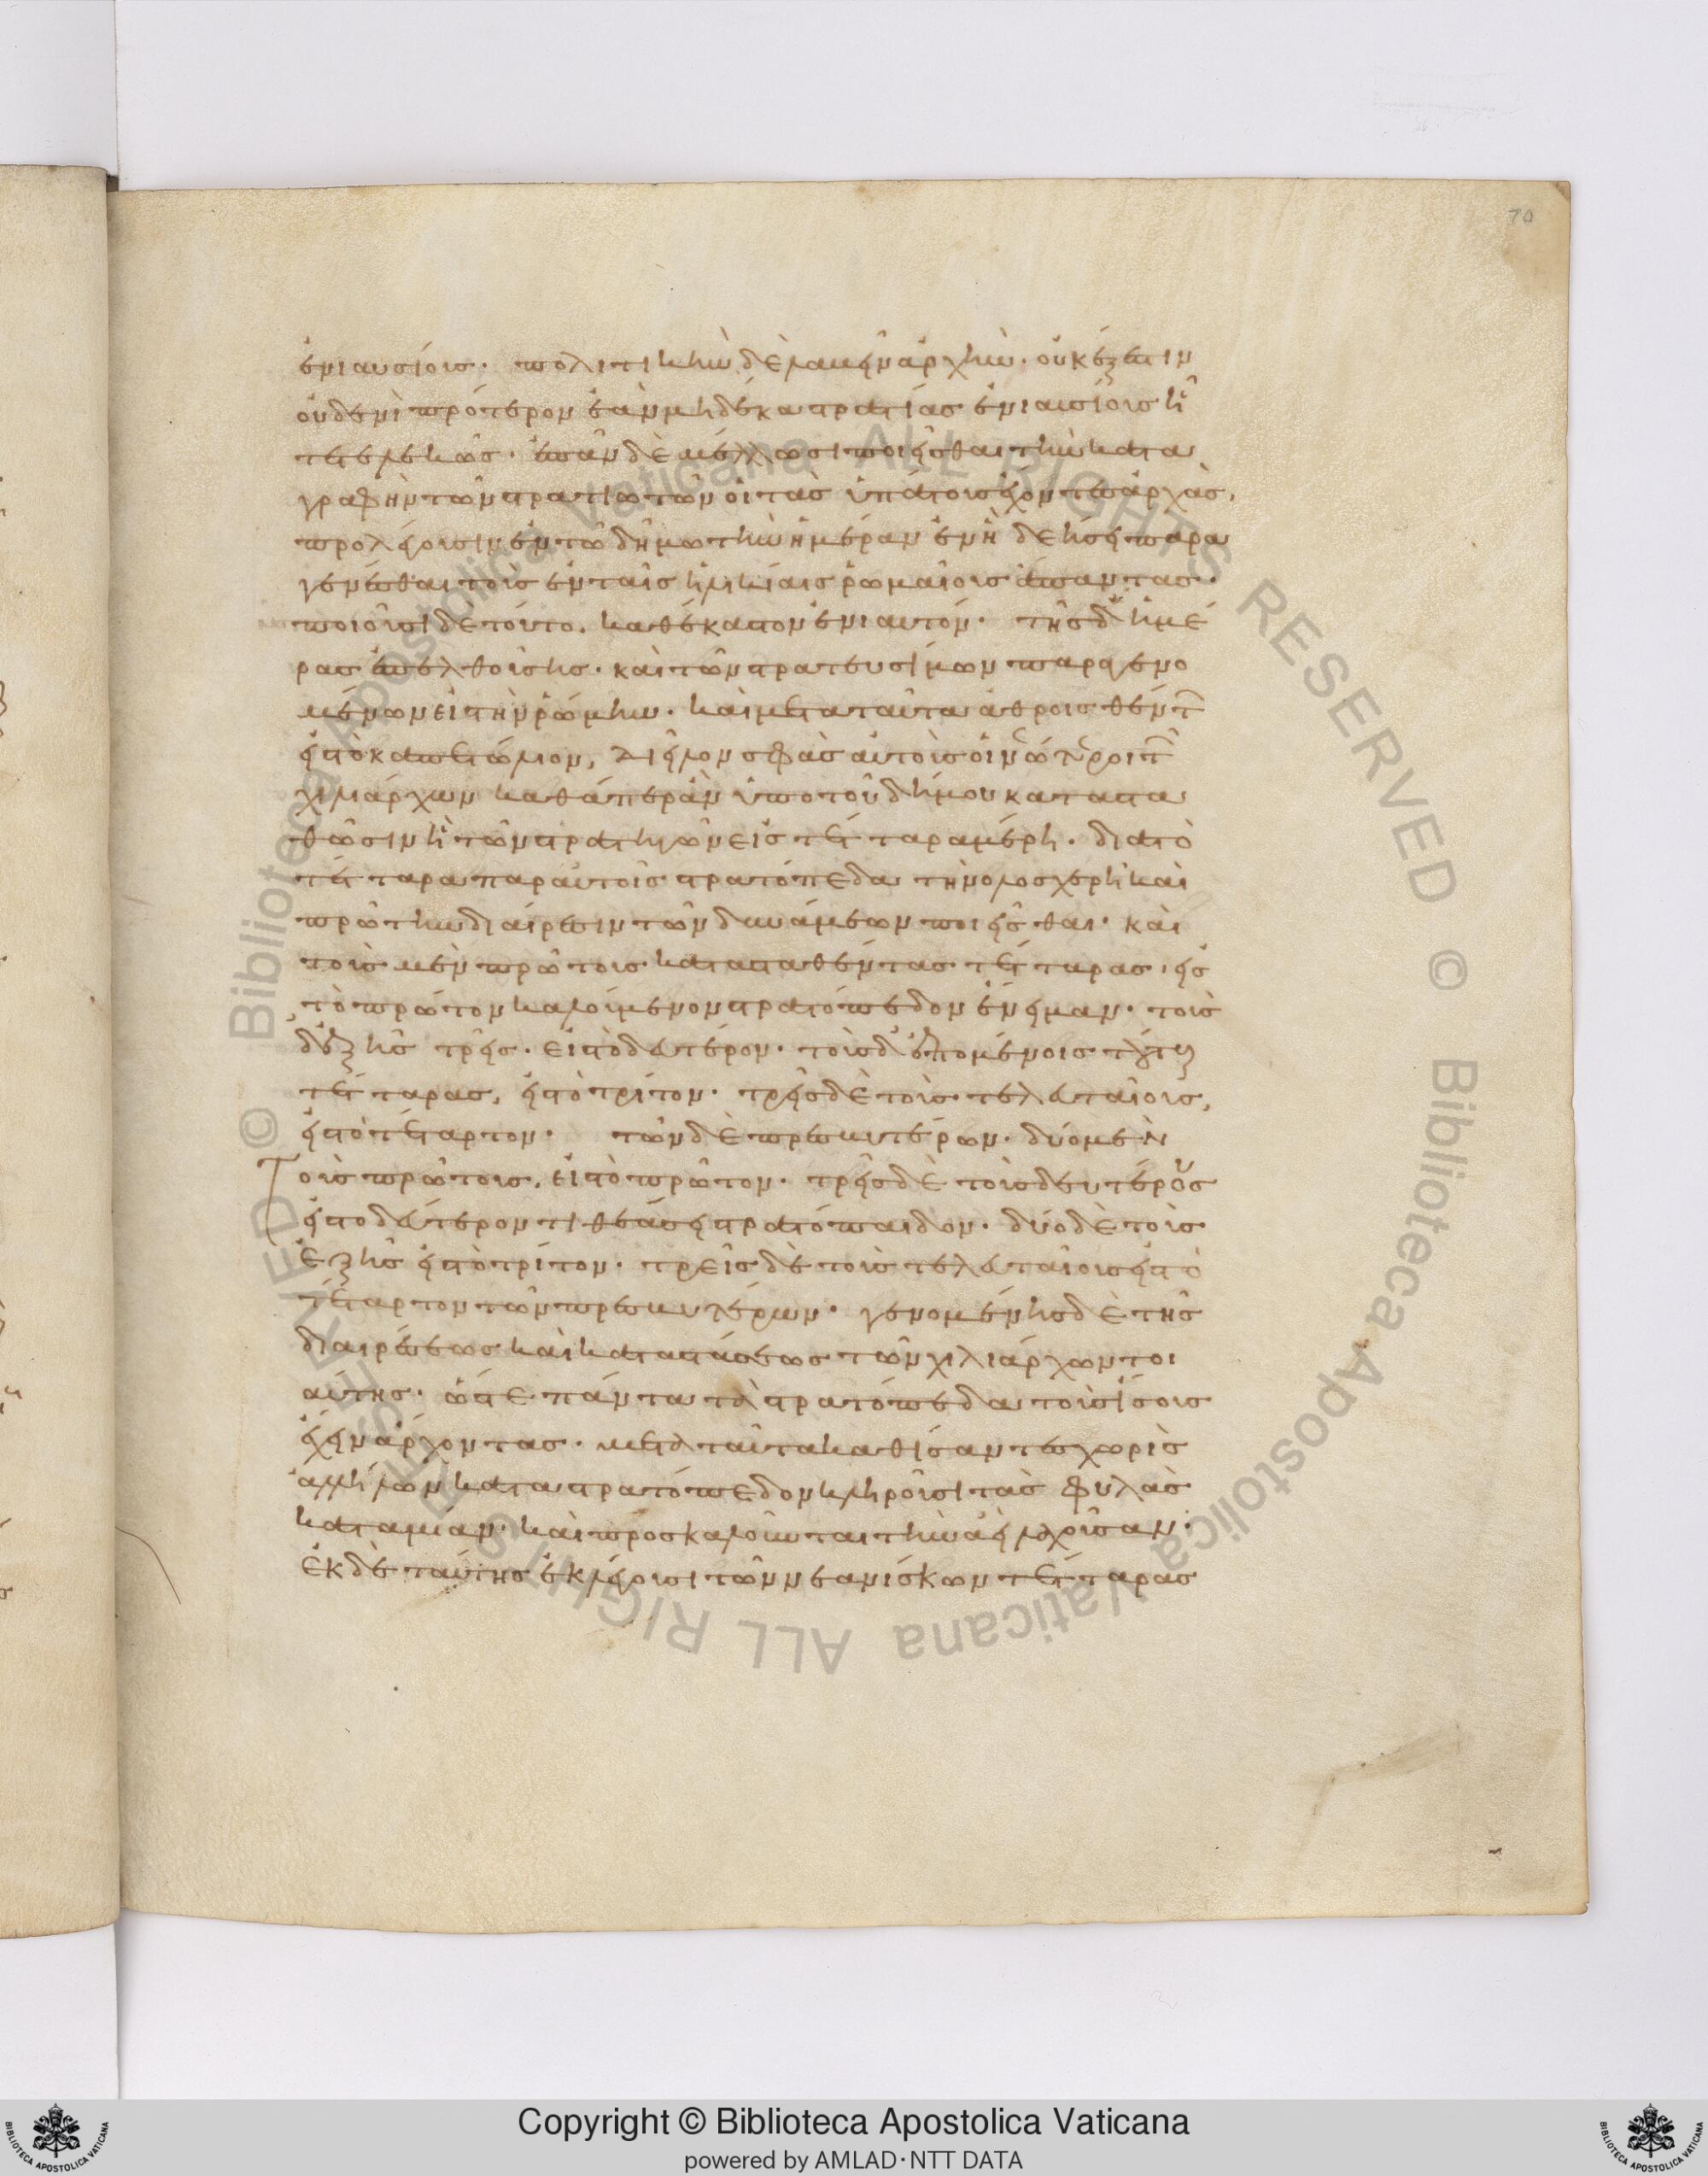 70
ἐνιαυσίοις. πολιτικὴν δὲ λαβεῖν ἀρχὴν. οὐκ ἔξεστιν
οὐδενὶ πρότερον ἐὰν μὴ δέκα στρατίας ἐνιαισίους ἦ
τετελεκὼς. ἐπὰν δὲ μέλλωσι ποιεῖσθαι τὴν κατα
γραφὴν τῶν στρατιωτῶν οἱ τὰς ὑπάτοις ἔχοντες ἀρχὰς,
προλέγουσιν ἐν τῶ δήμω τὴν ἡμέραν ἐν ἧ δεήσει παρα
γενέσθαι τοὺς ἐν ταῖς ἡλικίαις ῥωμαίους ἅπαντας.
ποιοῦσι δὲ τοῦτο. καθ ἕκαστον ἐνιαυτόν. τῆς δ ἡμέ
ρας ἐπελθούσης. καὶ τῶν στρατευσίμων παραγενο
μένων εἰς τὴν ῥώμην. καὶ μετα ταῦτα ἀθροισθέντ
εἰς τὸ καπετώλιον, διεῖλον σφὰς αὐτοὺς οἱ νεώτεροι τ
χιλιάρχων καθάπερ ἂν ὑπο τοῦ δήμου καταστα
θῶσιν ἢ τῶν στρατηγῶν εἰς τέτταρα μέρη. δια τὸ
τέτταρα παρ αὐτοῖς στρατόπεδα τὴν ολοσχερῆ καὶ
πρώτην διαίρεσιν τῶν δυνάμεων ποιεῖσθαι. καὶ
τοὺς μὲν πρώτους κατασταθέντας τέτταρας, εἰς
τὸ πρῶτον καλούμενον στρατόπεδον ἔνειμαν. τοὺς
δ ἑξῆς τρεῖς. εἰς τὸ δεύτερον. τοὺς δ ἑπομένους τούτοις
τέτταρας, εἰς τὸ τρίτον. τρεῖς δὲ τοὺς τελευταίους,
εἰς τὸ τέταρτον. τῶν δὲ πρεσβυτέρων. δύο μὲν
Τοὺς πρώτους, εἰς τὸ πρῶτον. τρεῖς δὲ τοὺς δευτέρους
εἰς το δεύτερον τιθέασει στρατόπαιδον. δύο δὲ τοὺς
ἑξῆς εἰς τὸ τρίτον. τρεῖς δὲ τοὺς τελευταίους εἰς τὸ
τέταρτον τῶν πρεσβυτέρων. γενομένης δὲ τῆς
διαιρέσεως καὶ καταστάσεως τῶν χιλιάρχων τοι
αύτης. ὥστε πάντα τὰ στρατόπεδα τοὺς ἴσους
ἔχειν ἄρχοντας. μετὰ ταῦτα καθίσαντες χωρὶς
ἀλλήλων κατα στρατόπεδον κληροῦσι τὰς φυλὰς
κατα μιαν. καὶ προσκαλοῦνται τὴν ἀεὶ λαχοῦσαν.
ἐκ δὲ ταύτης ἐκλέγουσι τῶν νεανίσκων τέτταρας
Copyright © Biblioteca Apostolica Vaticana
powered by AMLAD·NTT DATA